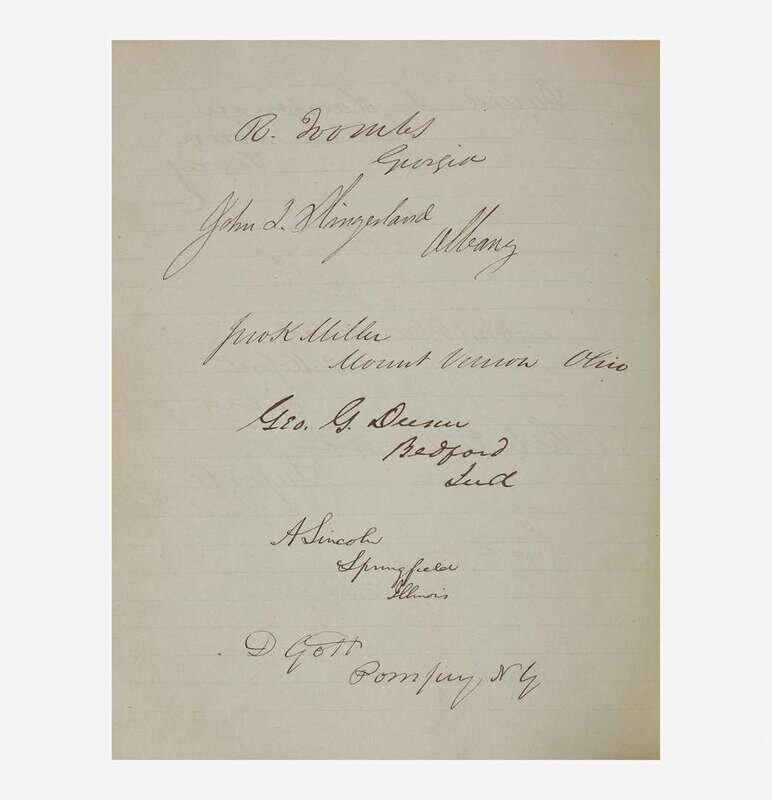 R. Toombs
Georgia
John I. Slingerland
Albany
Jno K Miller
Mount Vernon Ohio
Geo. G. Dunn
Bedford
Ind
A Lincoln
Springfield
Illinois
D Gott
Pompey, N Y